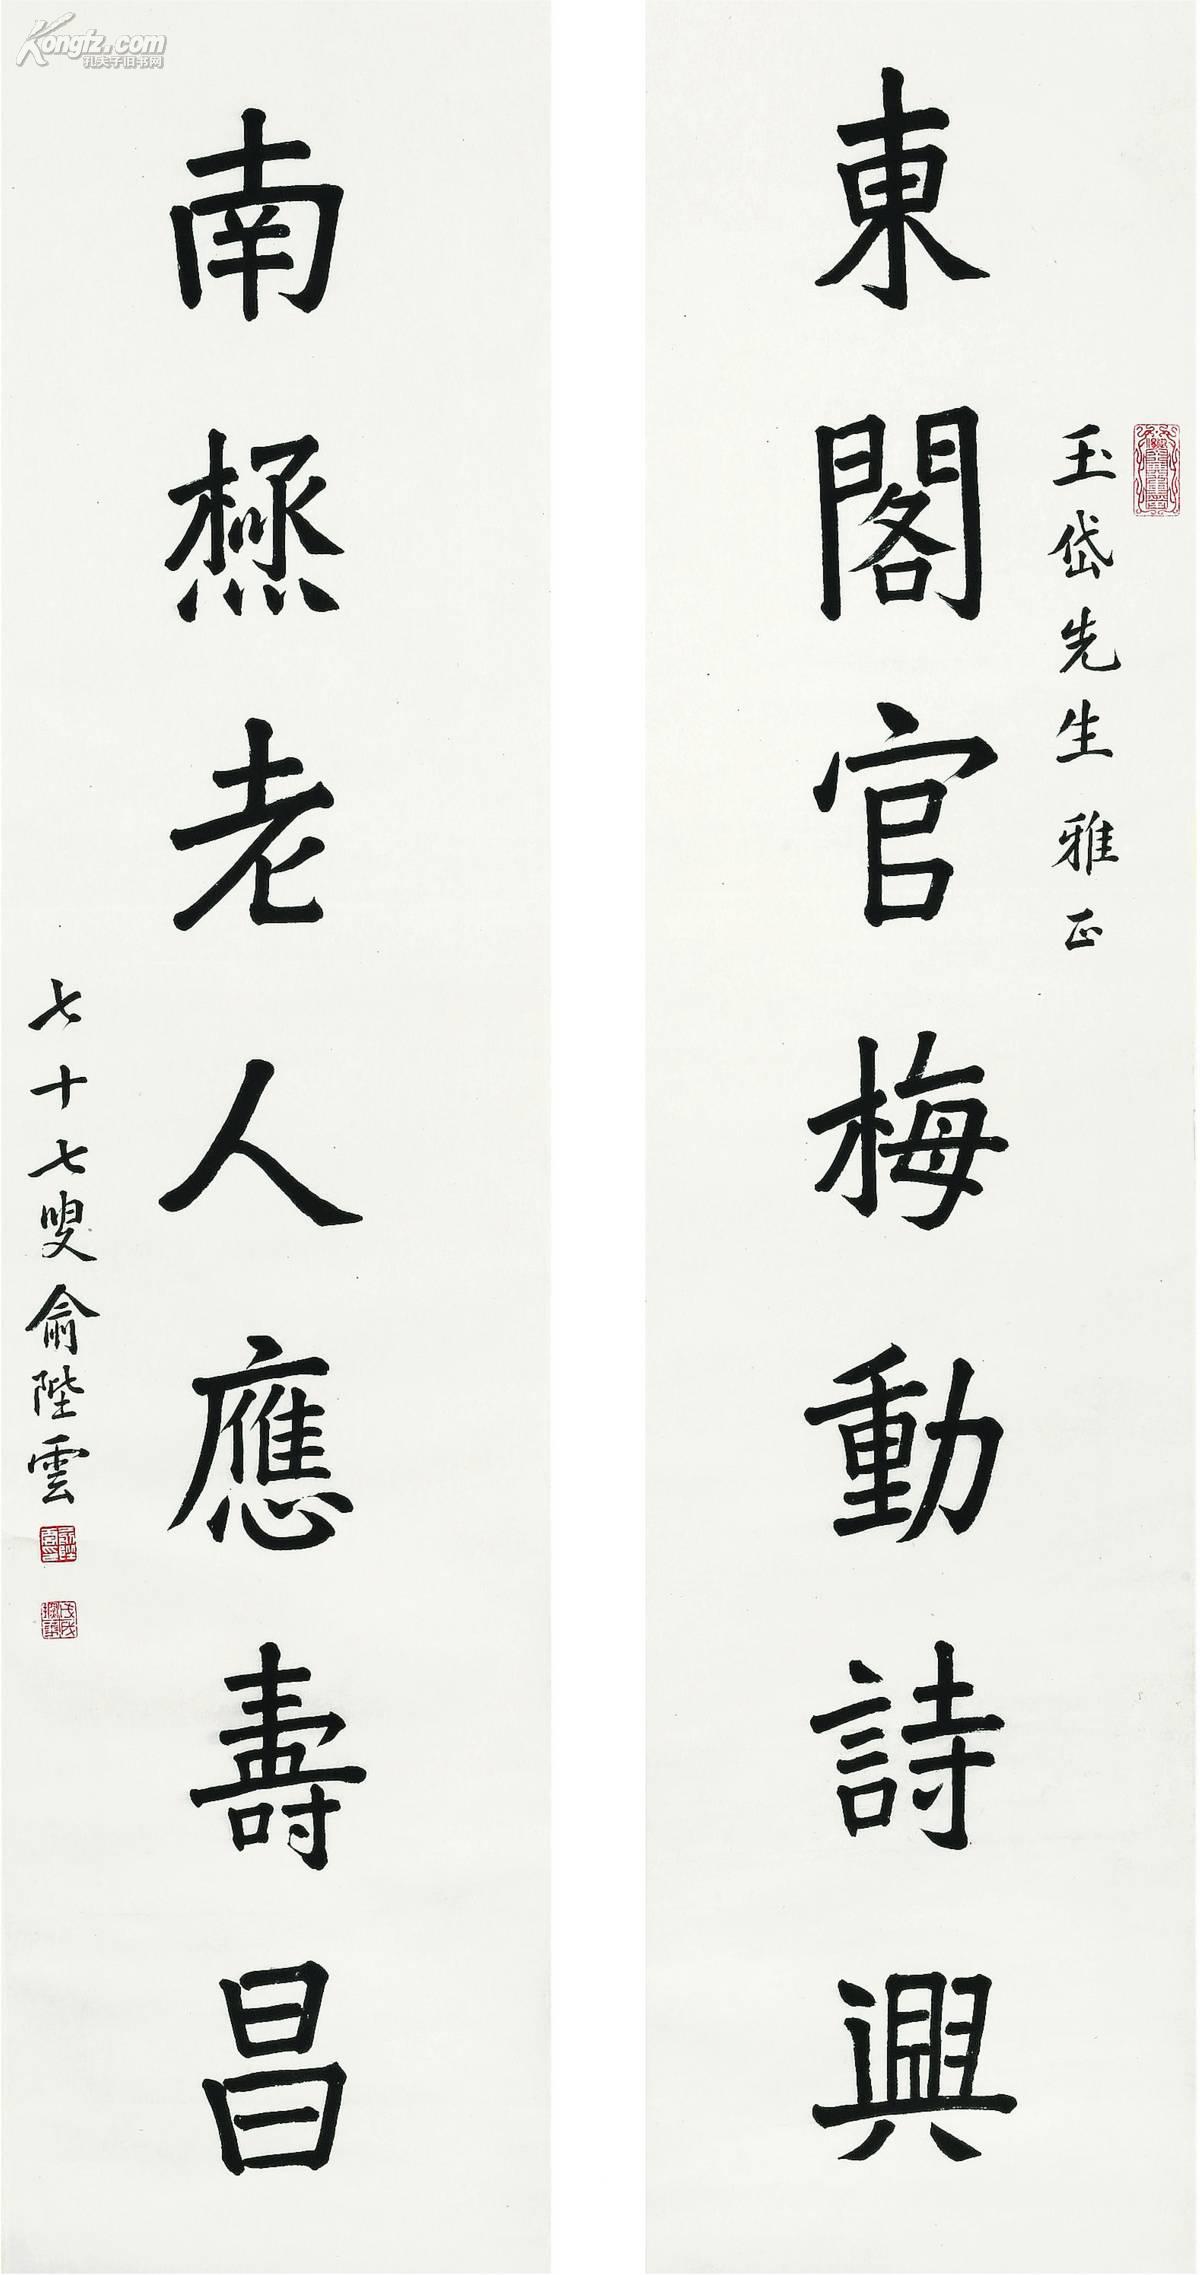 東閣官梅動詩興
玉岱先生雅正
南極老人應壽昌
七十七叟俞陛雲
Kongfz.com
孔夫子旧书网